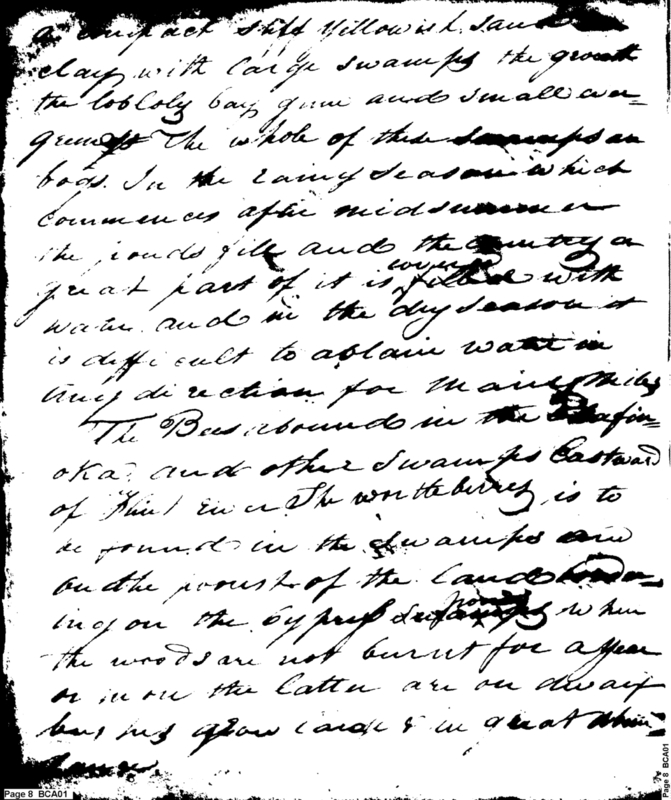 a compact stiff yellowish sand
clay with large swamps the growth
the lobloly bay gum and small ever-
greens The whole of these
bogs. In the rainy season which
commences after midsummer
the ponds fill and the country a
covered
great part of it is filled with
water and in the dry season it
is difficult to obtain water in
any direction for many miles
The Bees abound in the
oka? and other swamps Eastward
of Flint River The wortleberry is to
be found in the swamps and
on the poorest of the land border-
ponds
ing on the cypress when
the woods are not burnt for a year
or more the latter are on dwarf
bushes grow large & in great abun-
dance.
Page 8 BCA01
Page 8 BCA01